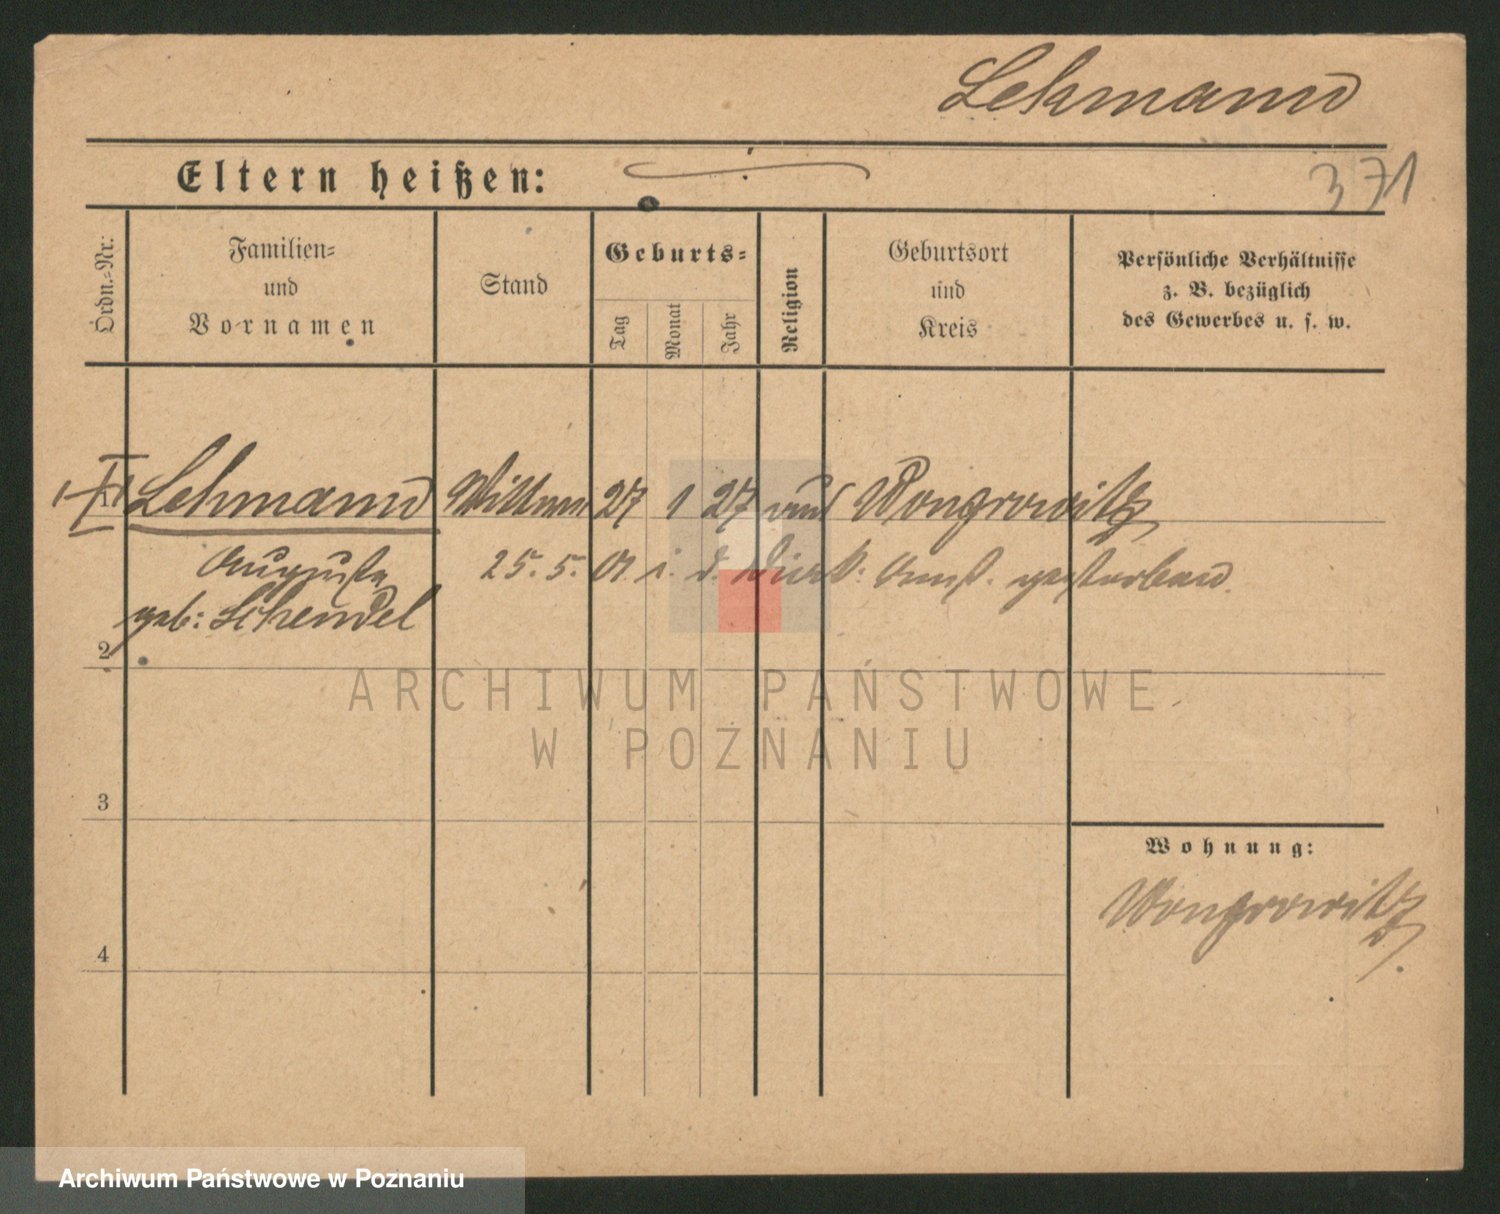 Lehmann
Eltern heißen:
371
Ordn.-Nr.
Familien-
und
Vornamen
Stand
Geburts-
Tag
Monat
Jahr
Religion
Geburtsort
und
Kreis
Persönliche Verhältnisse
z. B. bezüglich
des Gewerbes u. s. w.
1 Lehmann 27 1 27 Wongrowitz
Auguste 25. 5. 01. i. d. gestorben.
geb: Schendel
2
3
4
Wohnung:
Wongrowitz
ARCHIWUM PAŃSTWOWE
W POZNANIU
Archiwum Państwowe w Poznaniu